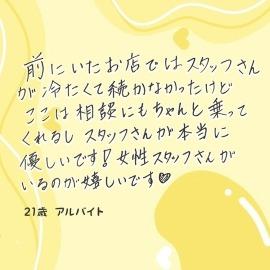 前にいたお店ではスタッフさん
が冷たくて続かなかったけど
ここは相談にもちゃんと乗って
くれるし スタッフさんが本当に
優しいです！女性スタッフさんが
いるのが嬉しいです♡
21歳 アルバイト